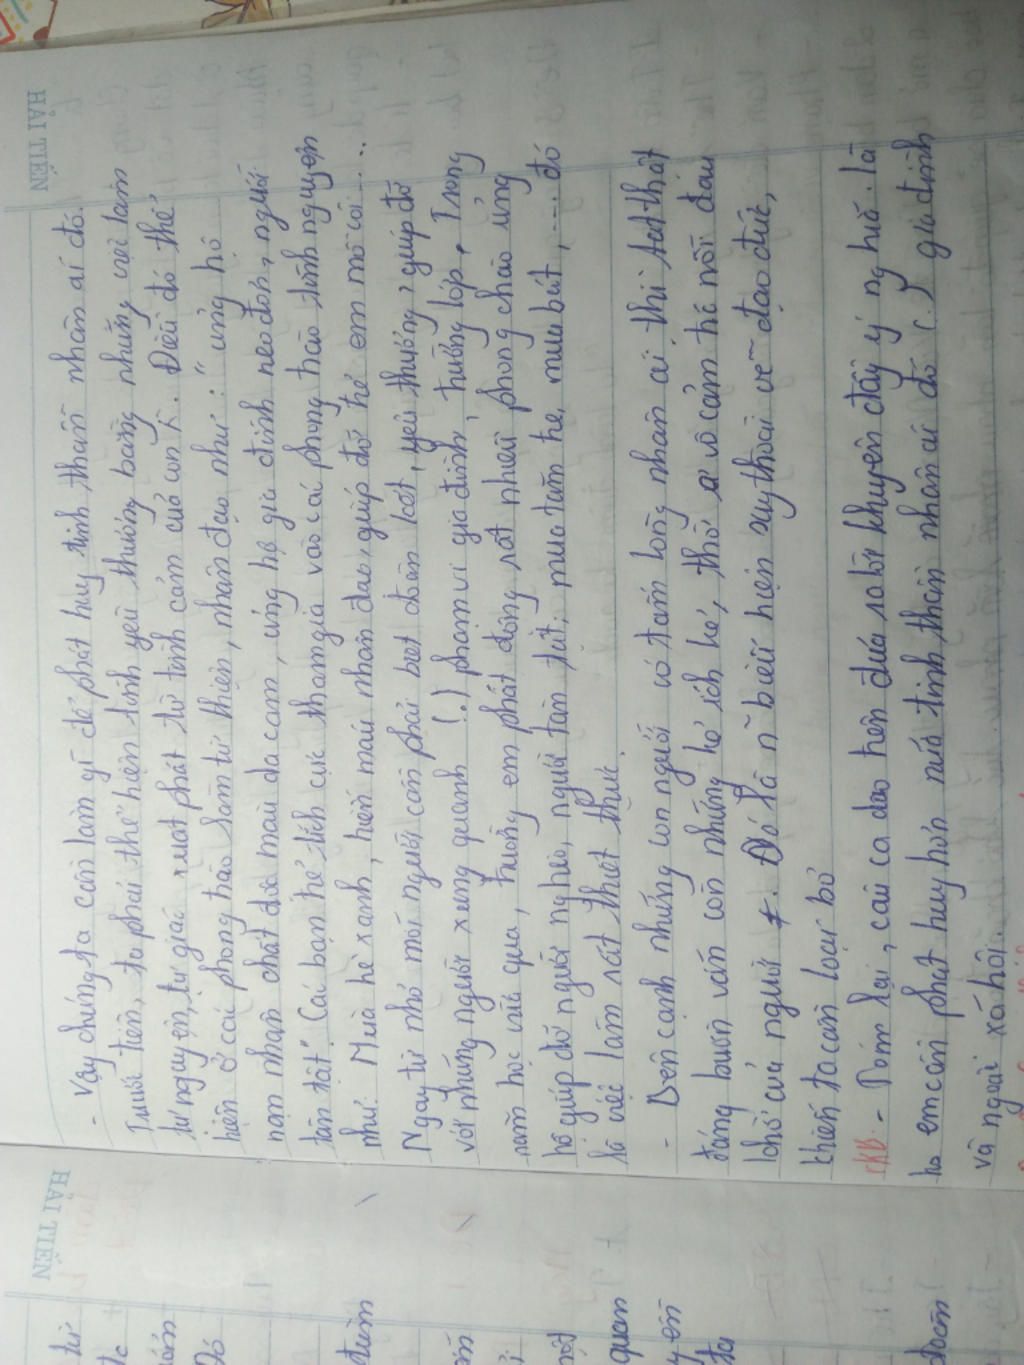 HẢI TIẾN
- Vậy chúng ta cần làm gì để phát huy tinh thần nhân ái đó.
Trước tiên, ta phải thể hiện tình yêu thương bằng những việc làm
tự nguyện, tự giác xuất phát từ tình cảm của con n. Điều đó thể
hiện ở các phong trào làm từ thiện, nhân đạo như: "ủng hộ
nạn nhân chất độc màu da cam, ủng hộ gia đình neo đơn, người
tàn tật". Các bạn trẻ tích cực tham gia vào các phong trào tình nguyện
như: Mùa hè xanh, hiến máu nhân đạo, giúp đỡ trẻ em mồ côi ...
Ngay từ nhỏ mỗi người cần phải biết đoàn kết, yêu thương, giúp đỡ
với những người xung quanh (.) phạm vi gia đình, trường lớp. Trong
năm học vừa qua, trường em phát động rất nhiều phong chào ủng
hộ giúp đỡ người nghèo, người tàn tật; mua tăm tre, mua bút, ... đó
là việc làm rất thiết thực.
- Bên cạnh những con người có tấm lòng nhân ái thì thật
đáng buồn vẫn còn những kẻ ích kỉ, thờ ơ vô cảm trc nỗi đau
khổ của người #. Đó là n~ biểu hiện suy thoái về đạo đức,
khiến ta cần loại bỏ
CKB. - Tóm lại, câu ca dao trên đưa ra lời khuyên đầy ý nghĩa. Là
hs em cần phát huy hơn nữa tinh thần nhân ái đó (.) gia đình
và ngoài xã hội.
HẢI TIẾN
từ
Đó
quan
ta
đoàn